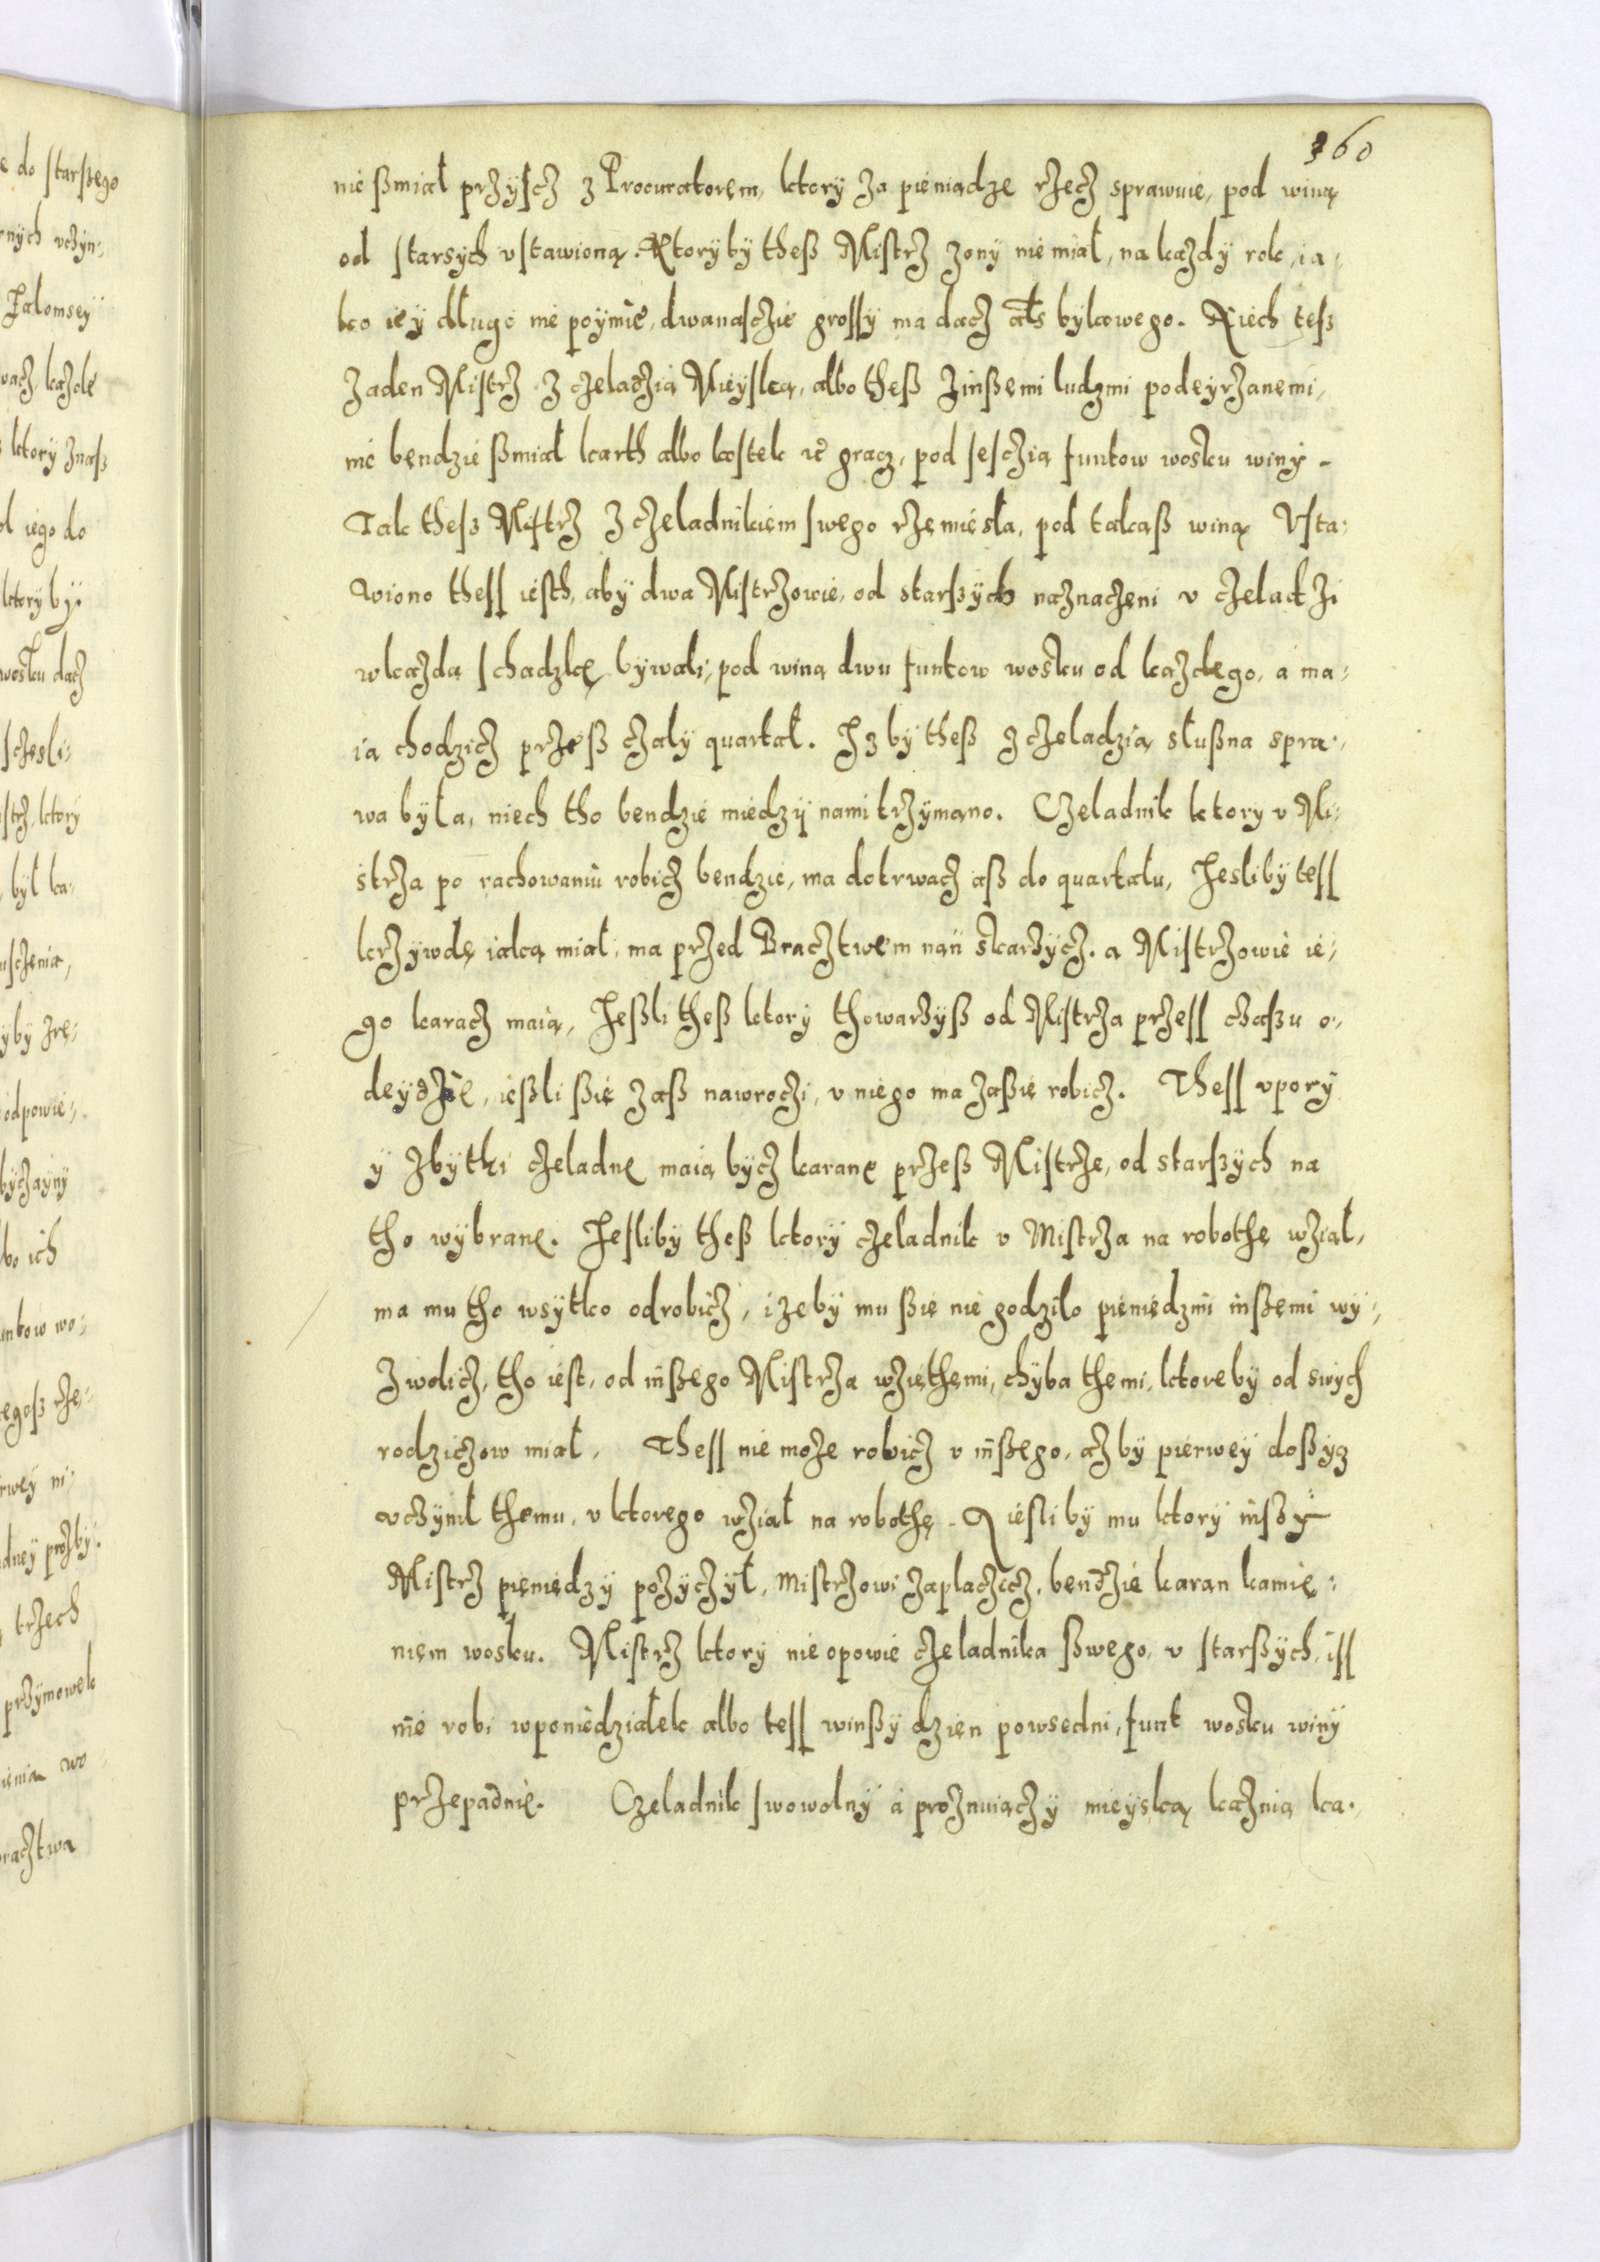 360
nie ßmiał przyscz z Procuratorem, ktory za pieniądze rzecz sprawuie, pod winą
od starsych ustawioną. Ktoryby theß Mistrz zony nie miał, na każdy rok, ia-
ko iey długo nie poymie, dwanasczie grossy ma dacz als bykowego. Niech tesz
zaden Mistrz z czeladzią Mieyską, albo theß zinßemi ludzmi podeyrzanemi,
nie bendzie ßmiał karth albo kostek w̃ gracz, pod sesczią funtow wosku winy.
Tak thesz Mistrz z czeladnikiem swego rzemiesła, pod takaß winą Vsta-
wiono thess iesth, aby dwa Mistrzowie, od starszych naznaczeni v czeladzi
wkazdą schadzkę bywali, pod winą dwu funtow wosku od kazdego, a ma-
ia chodzicz przeß czaly quartał. Izby theß z czeladzią słußna spra-
wa była, niech tho bendzie miedzy nami trzymano. Czeladnik ktory v Mi-
strza po rachowaniu robicz bendzie, ma dotrwacz aß do quartału, Iesliby tess
krzywdę iaką miał, ma przed Bracztwem nan skarzycz. a Mistrzowie ie-
go karacz maią, Ießli theß ktory thowarzyß od Mistrza przess czaszu o-
deydzie, ießli ßie zaß nawroczi, v niego ma zaßie robicz. Thess vpory
y zbytki czeladne maią bycz karane przeß Mistrze, od starszych na
tho wybrane. Iesliby theß ktory czeladnik v Mistrza na robothę wział,
ma mu tho wsytko odrobicz, izeby mu ßie nie godzilo pieniedzmi inßemi wy-
zwolicz, tho iest, od inßego Mistrza wziethemi, chyba themi, ktoreby od swych
rodziczow miał. Thess nie może robicz v inßego, azby pierwey doßyz
vczynił themu, v ktorego wział na robothę. A iesliby mu ktory inßy
Mistrz pieniedzy pożyczył, Mistrzowi zaplaczicz, bendzie karan kamie-
niem wosku. Mistrz ktory nie opowie czeladnika ßwego, v starßych, iss
nie robi wponiedziałek albo tess winßy dzien powsedni, funt wosku winy
przepadnie. Czeladnik swowolny a proznuiączy mieyską kaznią ka-